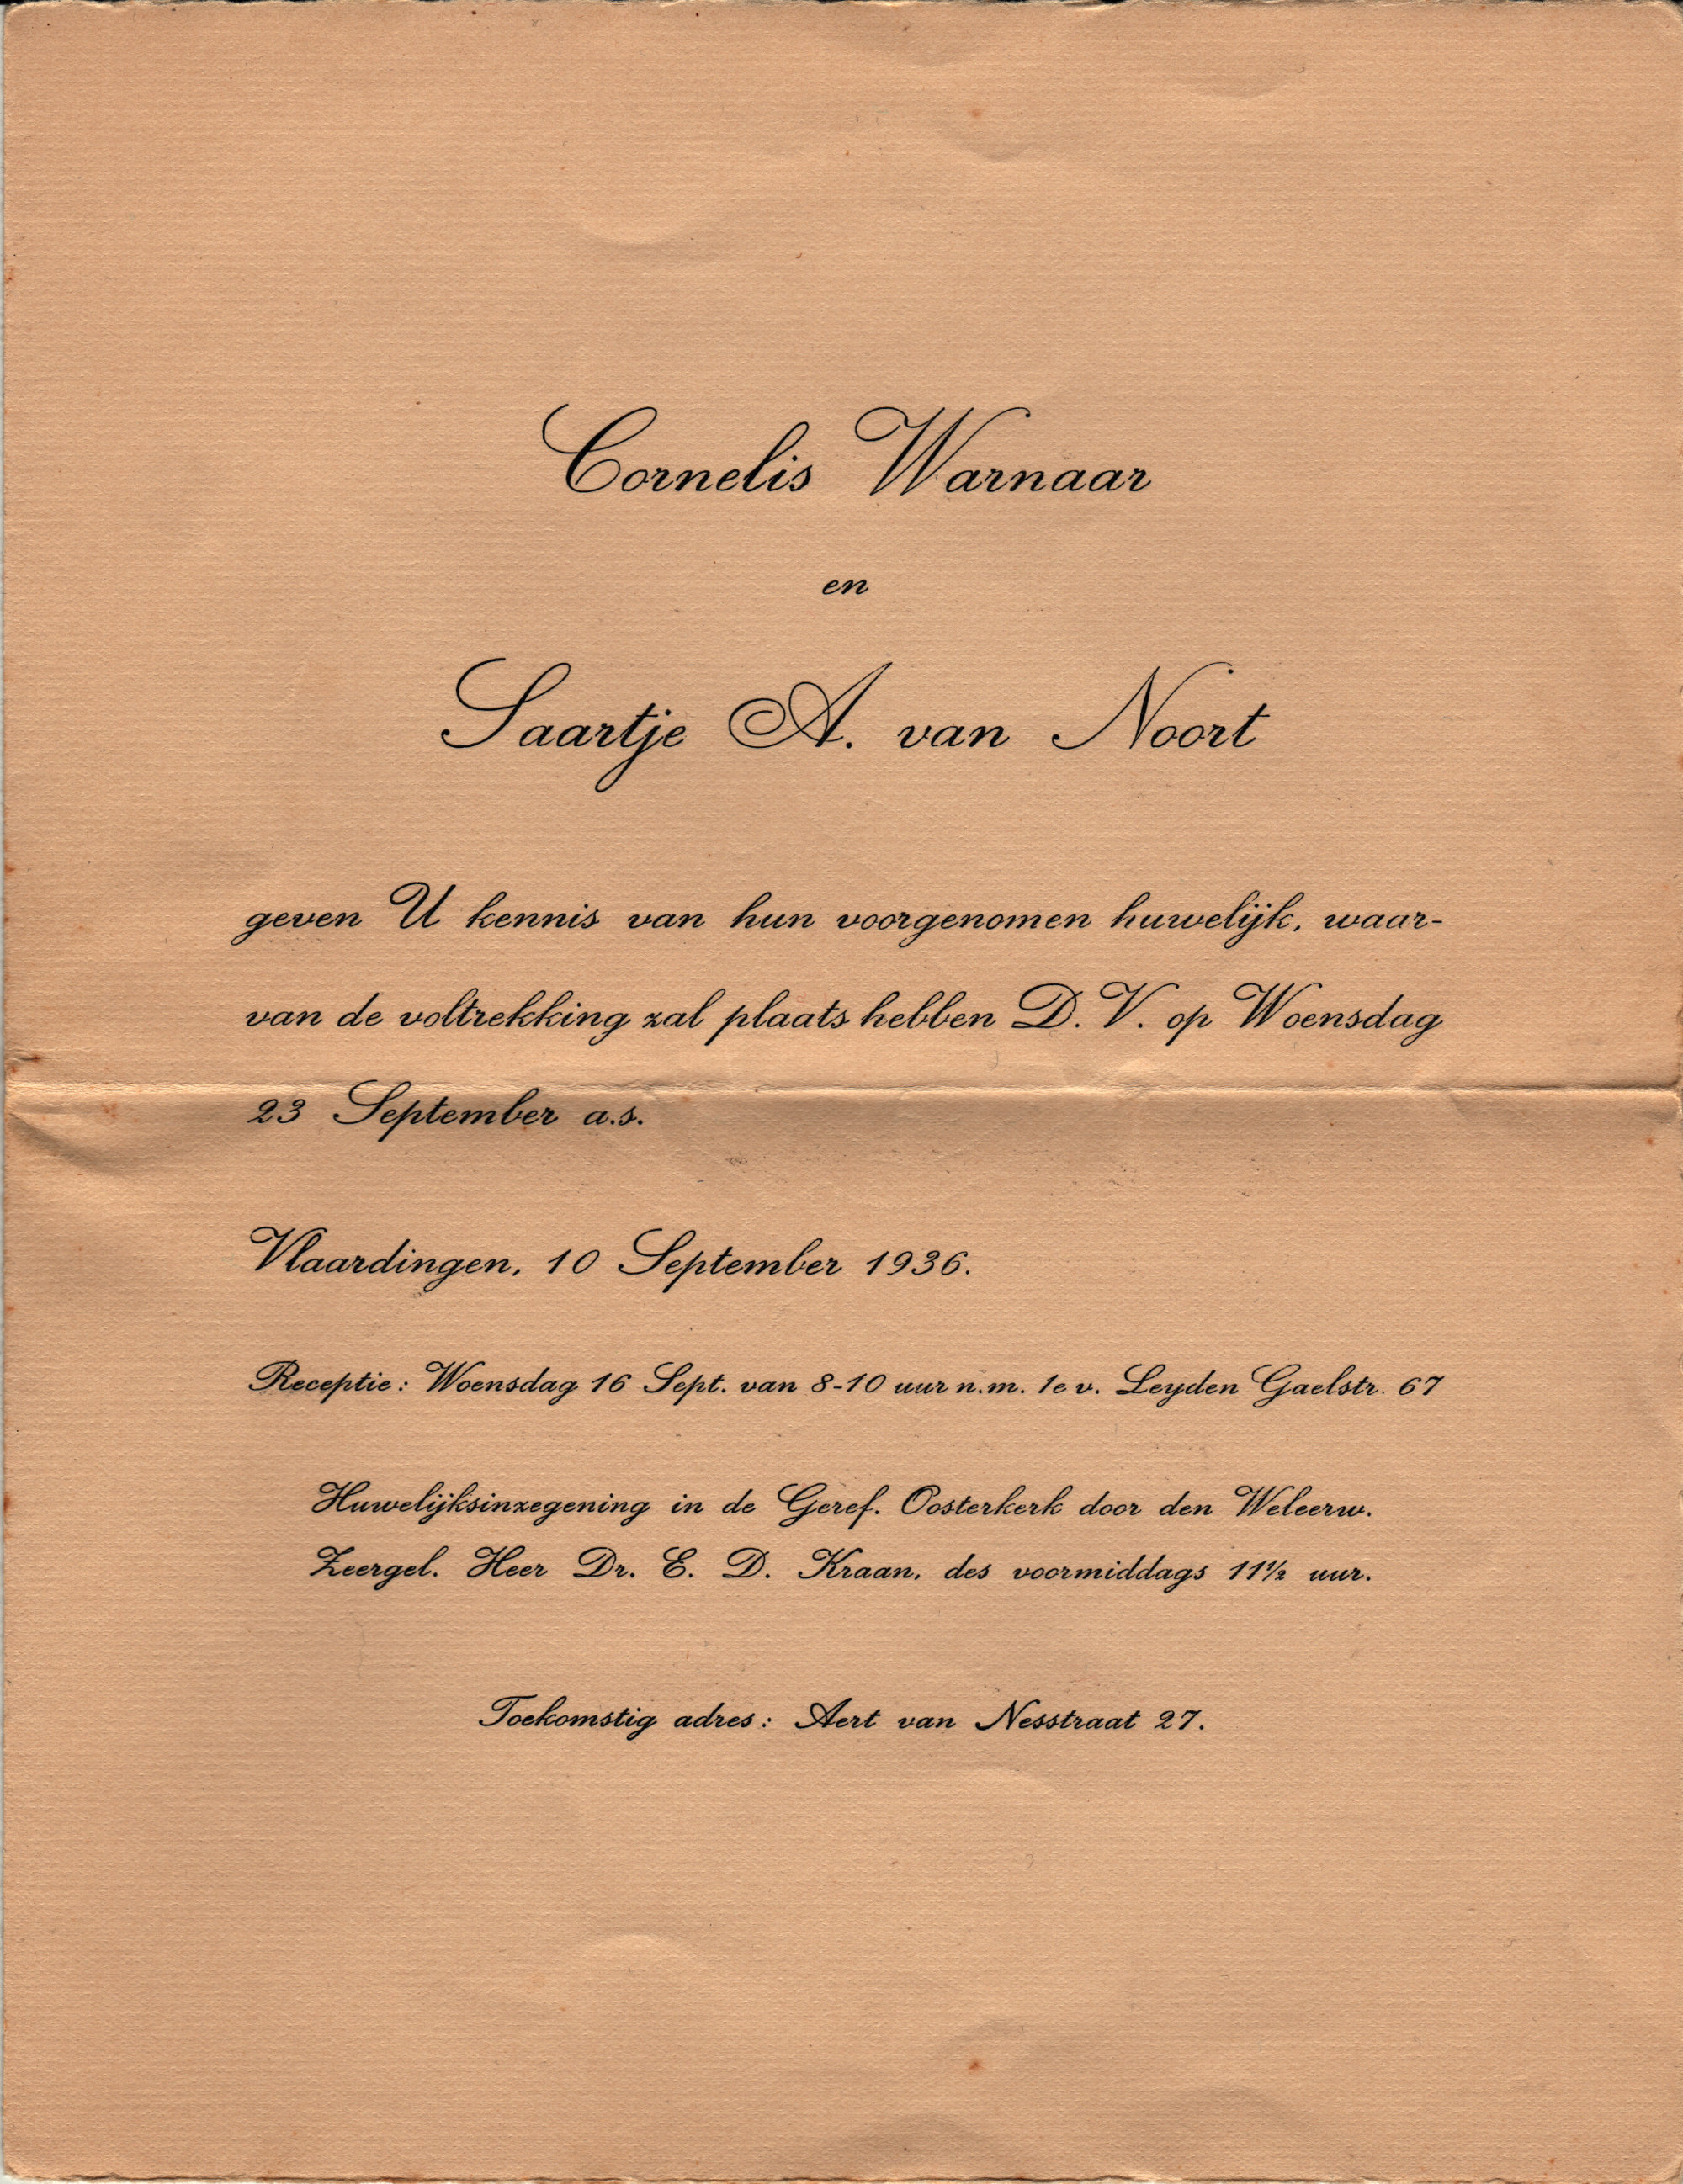 Cornelis Warnaar
en
Saartje A. van Noort
geven U kennis van hun voorgenomen huwelijk, waar-
van de voltrekking zal plaats hebben D. V. op Woensdag
23 September a.s.
Vlaardingen, 10 September 1936.
Receptie: Woensdag 16 Sept. van 8-10 uur n.m. 1e v. Leyden Gaelstr. 67
Huwelijksinzegening in de Geref. Oosterkerk door den Weleerw.
Zeergel. Heer Dr. E. D. Kraan, des voormiddags 11½ uur.
Toekomstig adres: Aert van Nesstraat 27.